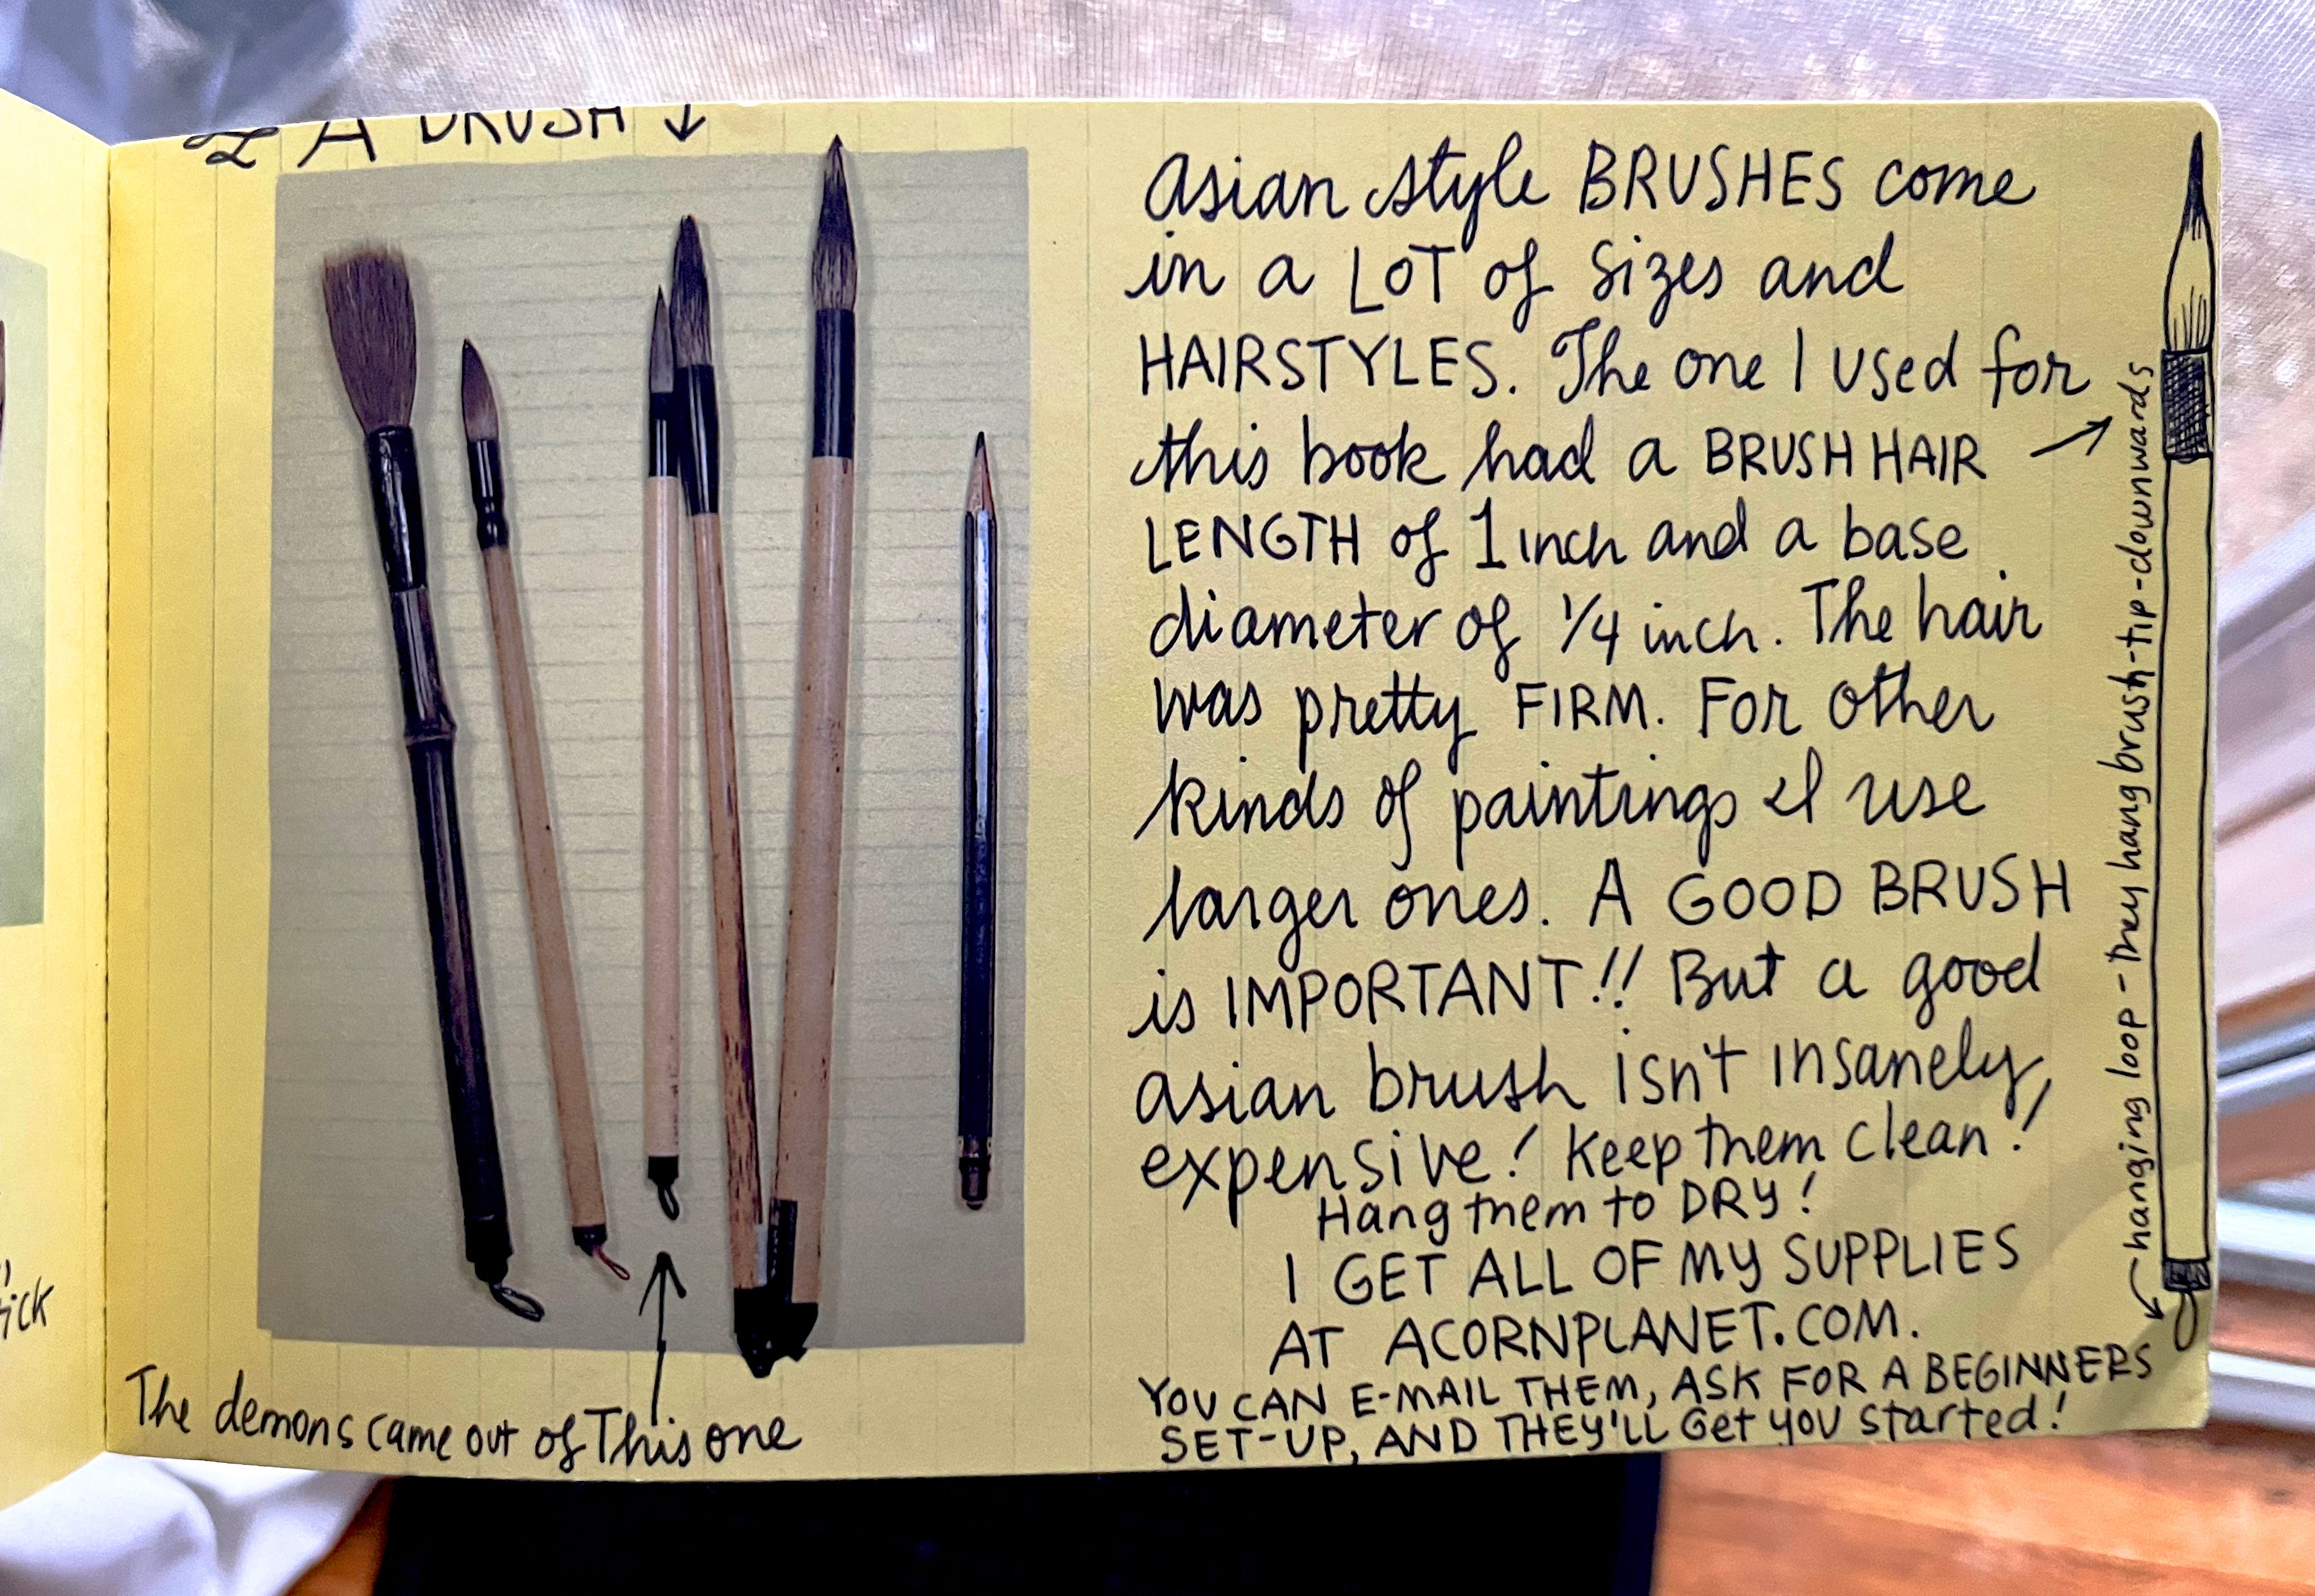 & A BRUSH ↓
The demons came out of This one
Asian style BRUSHES come
in a LOT of sizes and
HAIRSTYLES. The one I used for
this book had a BRUSH HAIR →
LENGTH of 1 inch and a base
diameter of 1/4 inch. The hair
was pretty FIRM. For other
kinds of paintings I use
larger ones. A GOOD BRUSH
is IMPORTANT!! But a good
asian brush isn't insanely
expensive! Keep them clean!
Hang them to DRY!
I GET ALL OF MY SUPPLIES
AT ACORNPLANET.COM.
YOU CAN E-MAIL THEM, ASK FOR A BEGINNERS
SET-UP, AND THEY'LL Get you started!
hanging loop - they hang brush-tip-downwards